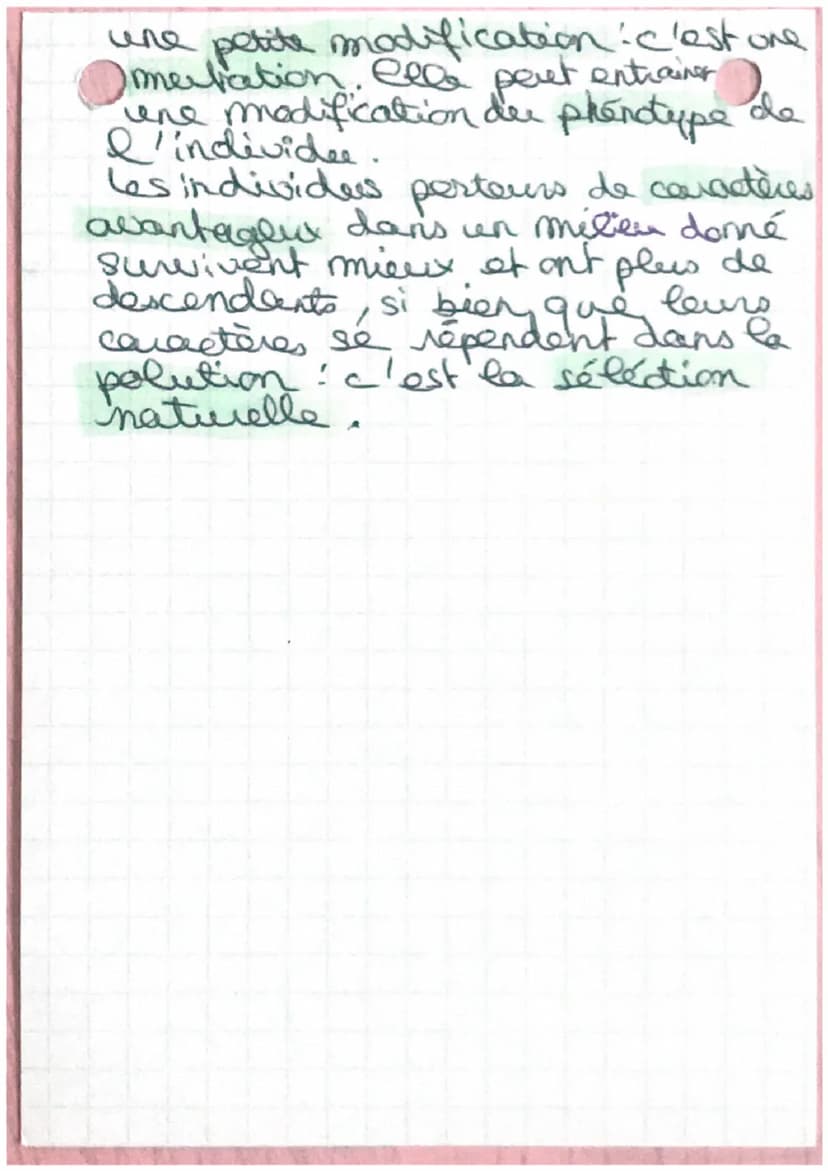 une petite modification : c'est une
mutation. Elle peut entrainer
une modification du phénotype de
l'individu.
Les individus porteurs de caractères
avantageux dans un milieu donné
survivent mieux et ont plus de
descendants, si bien que leurs
caractères se répendent dans la
polution : c'est la séléction
naturelle.